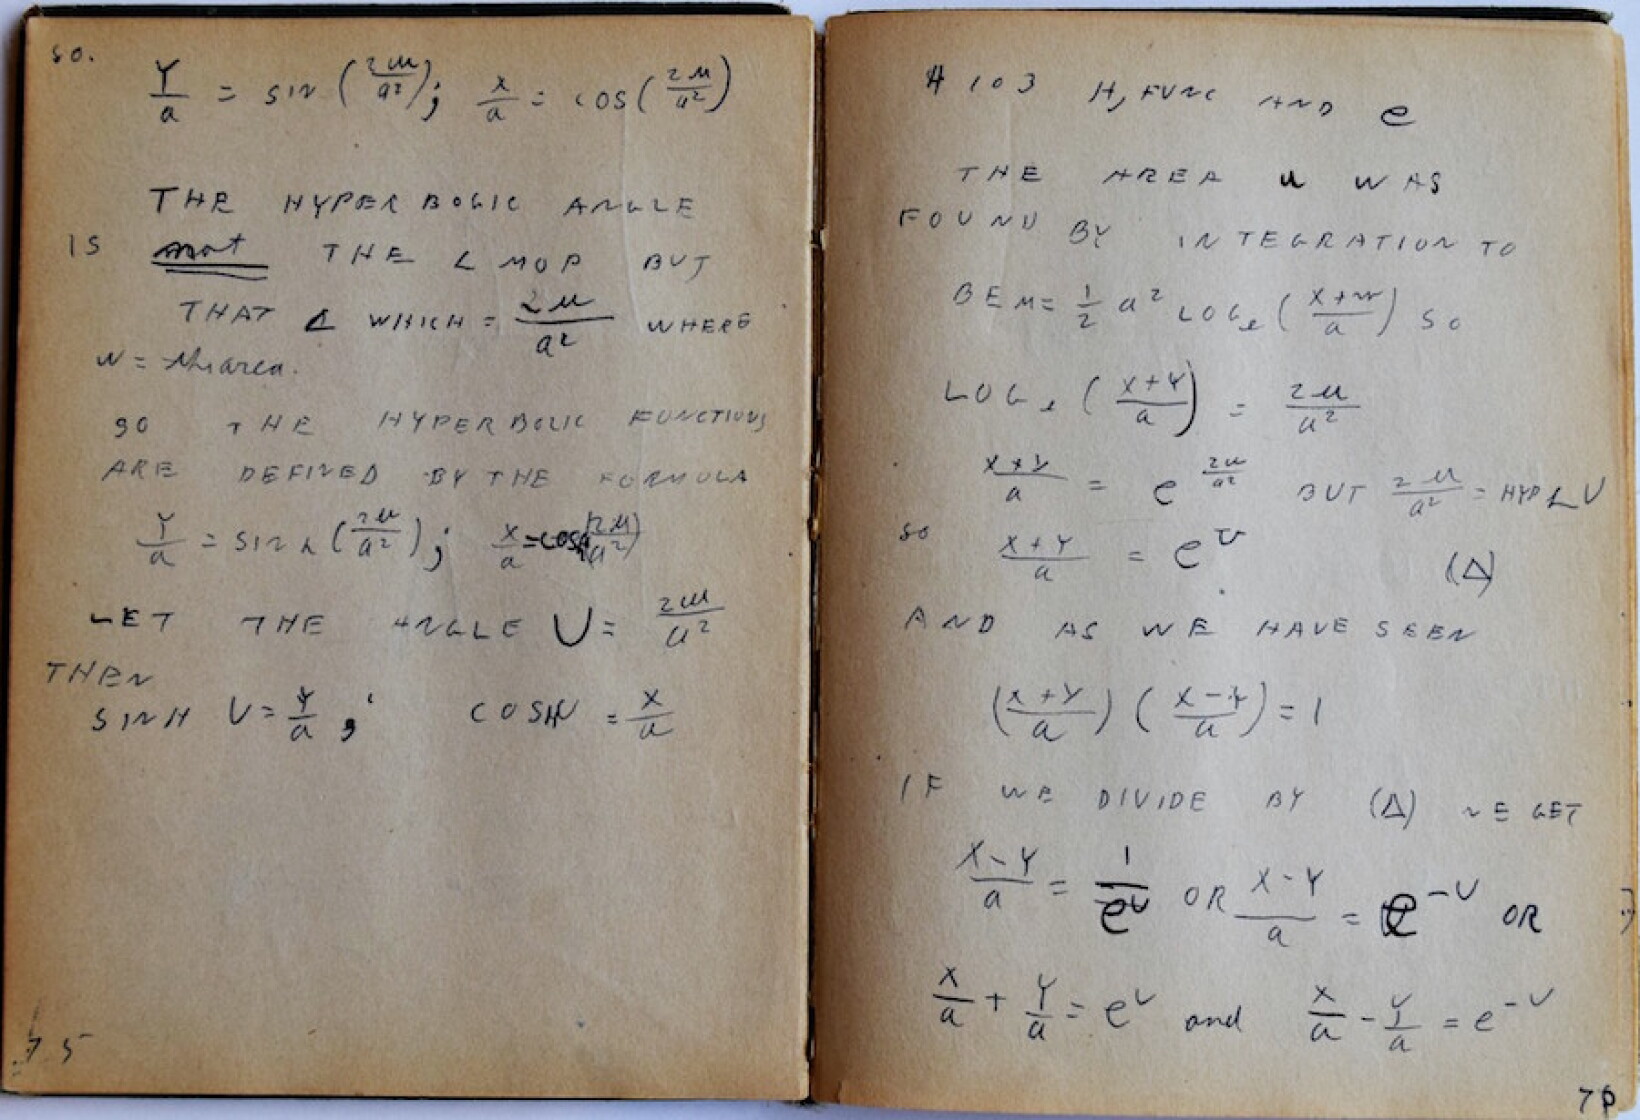 so.
Y/a = sin (2u/a²); x/a = cos (2u/a²)
THE HYPERBOLIC ANGLE
IS not THE ∠ MOP BUT
THAT ∠ WHICH = 2u/a² WHERE
u = the area.
SO THE HYPERBOLIC FUNCTIONS
ARE DEFINED BY THE FORMULA
Y/a = sin h (2u/a²); x/a = cosh (2u/a²)
LET THE ANGLE U = 2u/a²
THEN
SINH U = Y/a ; COSHU = X/a
75
# 103 H, FUNC AND e
THE AREA u WAS
FOUND BY INTEGRATION TO
BE u = 1/2 a² LOGe (X+Y/a) SO
LOGe (X+Y/a) = 2u/a²
X+Y/a = e^(2u/a²) BUT 2u/a² = HYP ∠ U
SO X+Y/a = e^U (Δ)
AND AS WE HAVE SEEN
(X+Y/a) (X-Y/a) = 1
IF WE DIVIDE BY (Δ) WE GET
X-Y/a = 1/e^U OR X-Y/a = e^-U OR
X/a + Y/a = e^U and X/a - Y/a = e^-U
76